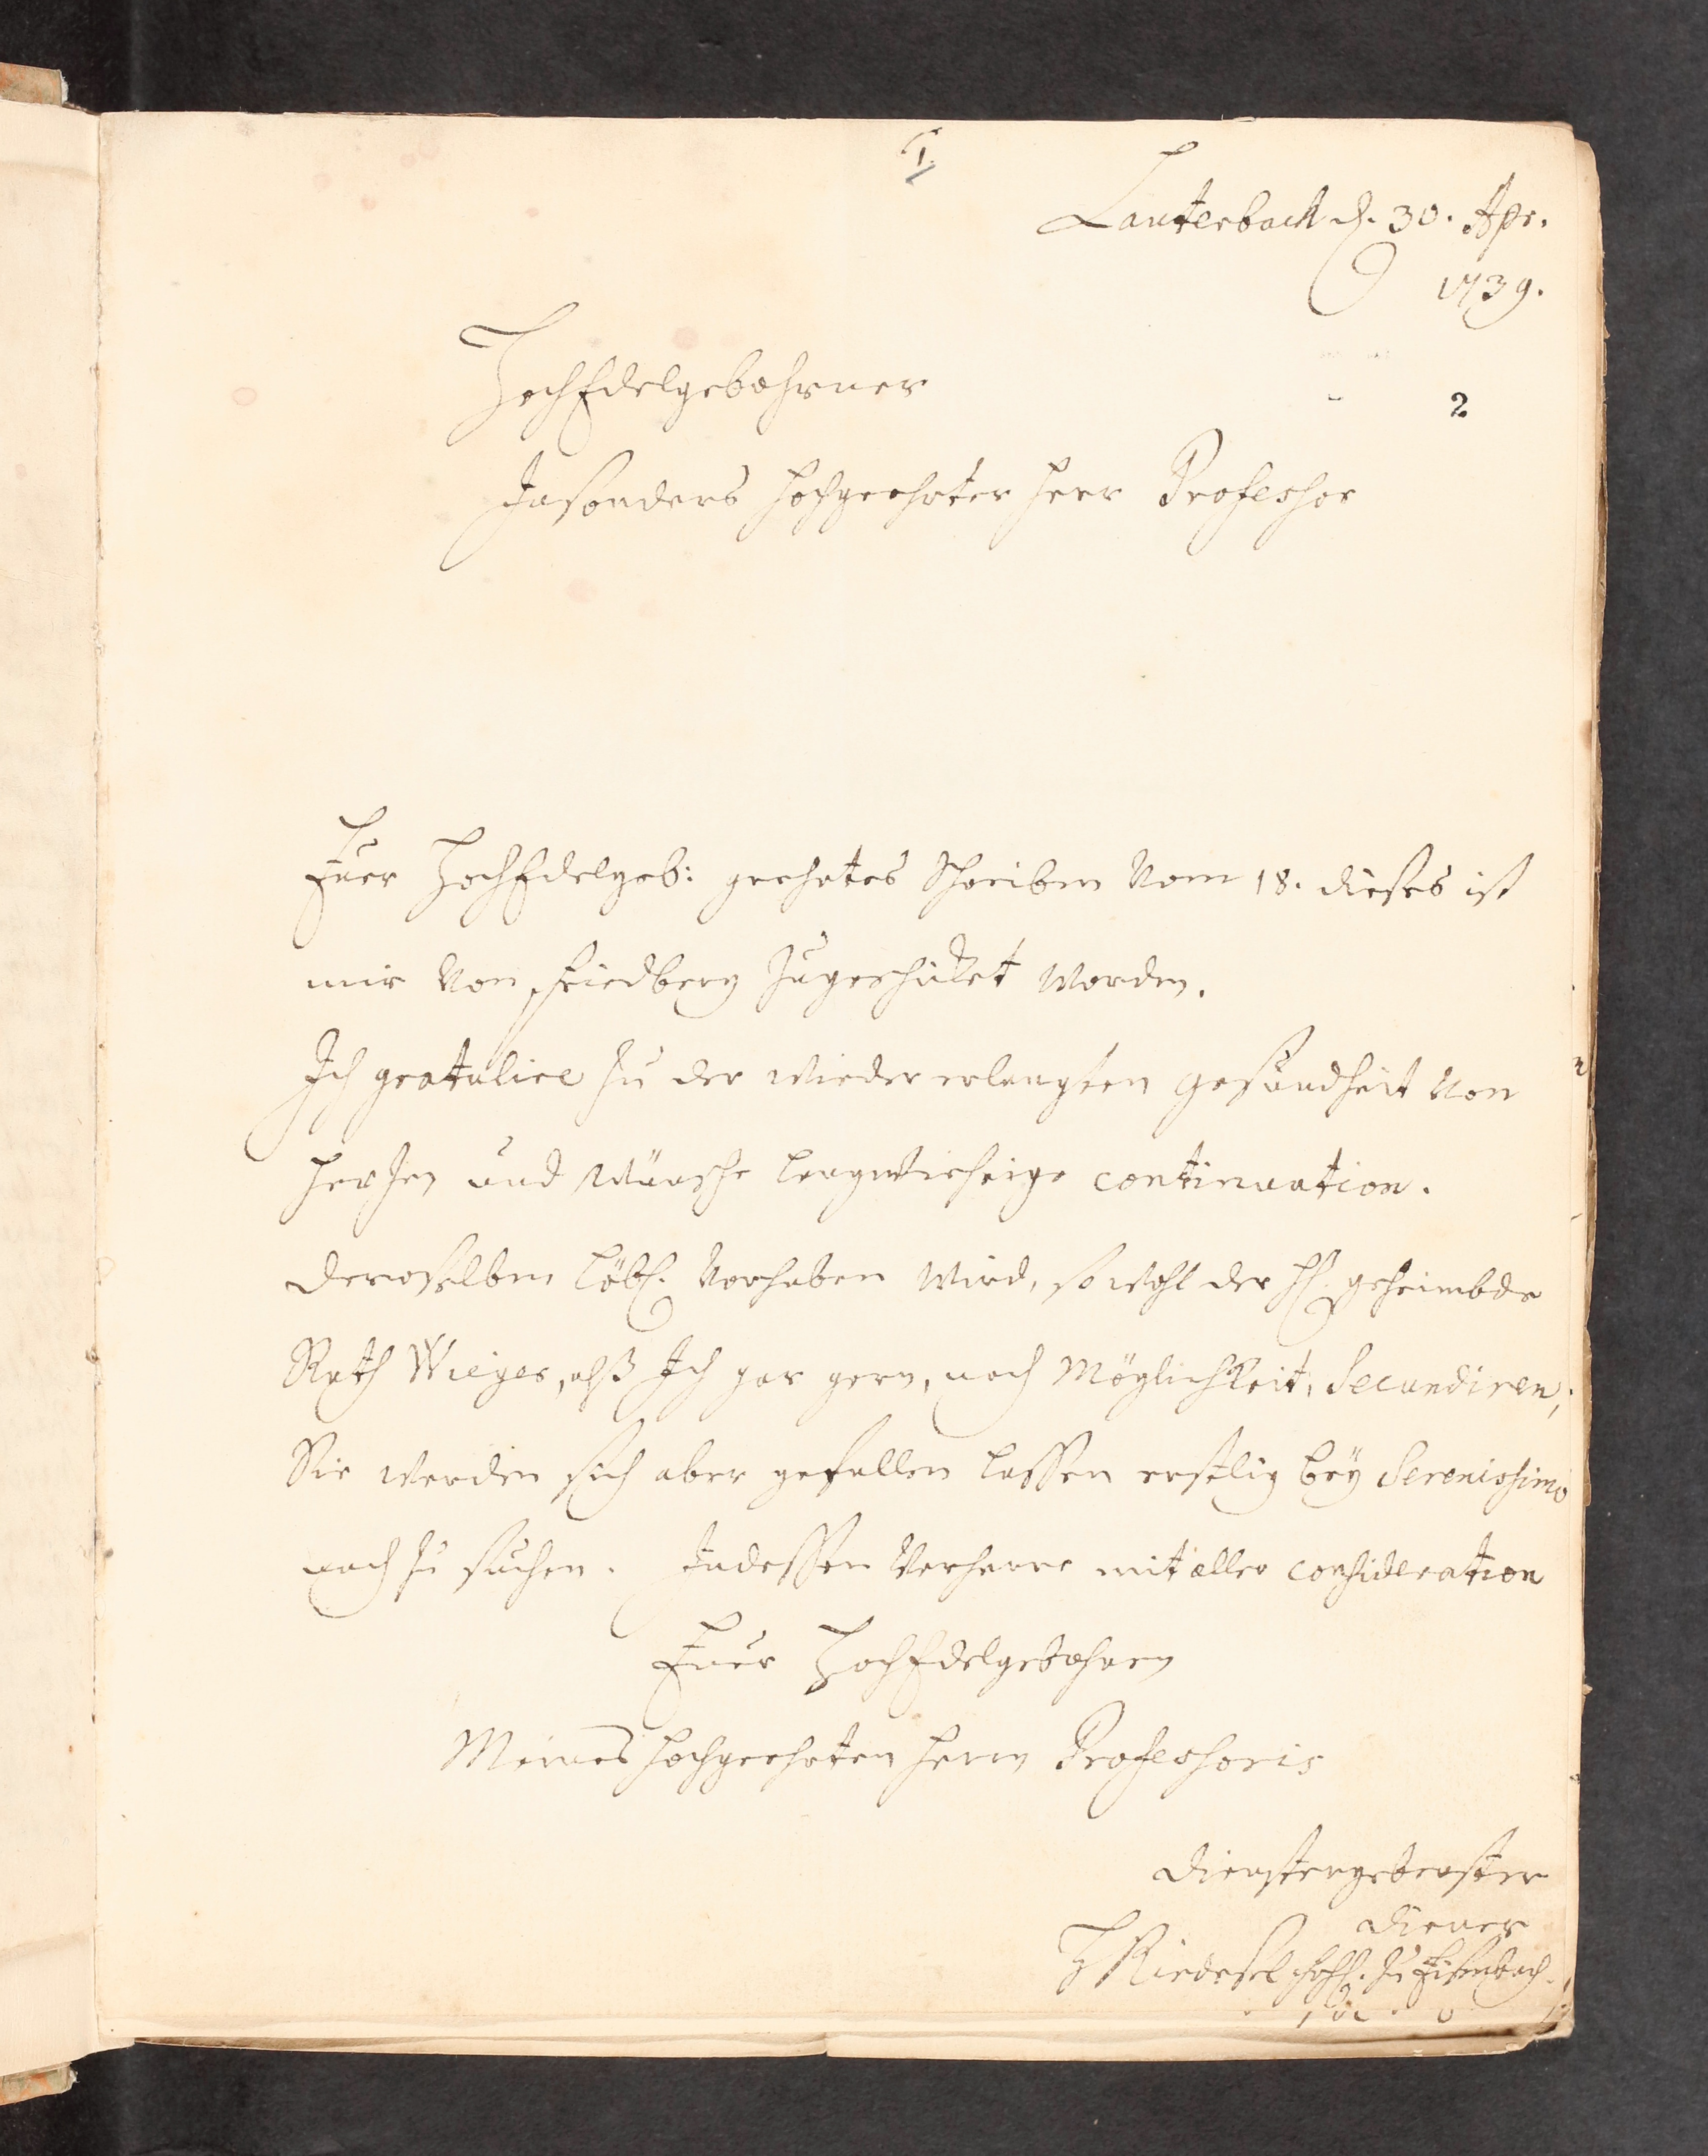 1.
Lauterbach d. 30. Apr.
1739.
HochEdelgebohrner
2
Insonders hochgeehrter Herr Professor
Euer HochEdelgeb: geehrtes Schreiben vom 18. dieses ist
mir von Friedberg zugeschicket worden.
Ich gratulire zu der wieder erlangten gesundheit von
Herzen und wünsche langwierige continuation.
Deroselben löbl. vorhaben wird, so wohl der H. geheimbde
Rath Wieger, alß Ich gar gern, nach Möglichkeit, secundiren,
Sie werden sich aber gefallen lassen erstlig bey Serenissimo
nach zu suchen. Indessen verharre mit aller consideration
Euer HochEdelgebohren
Meines hochgeehrten Herrn Professoris
dienstergebenster
diener
Riedesel zu Eisenbach.